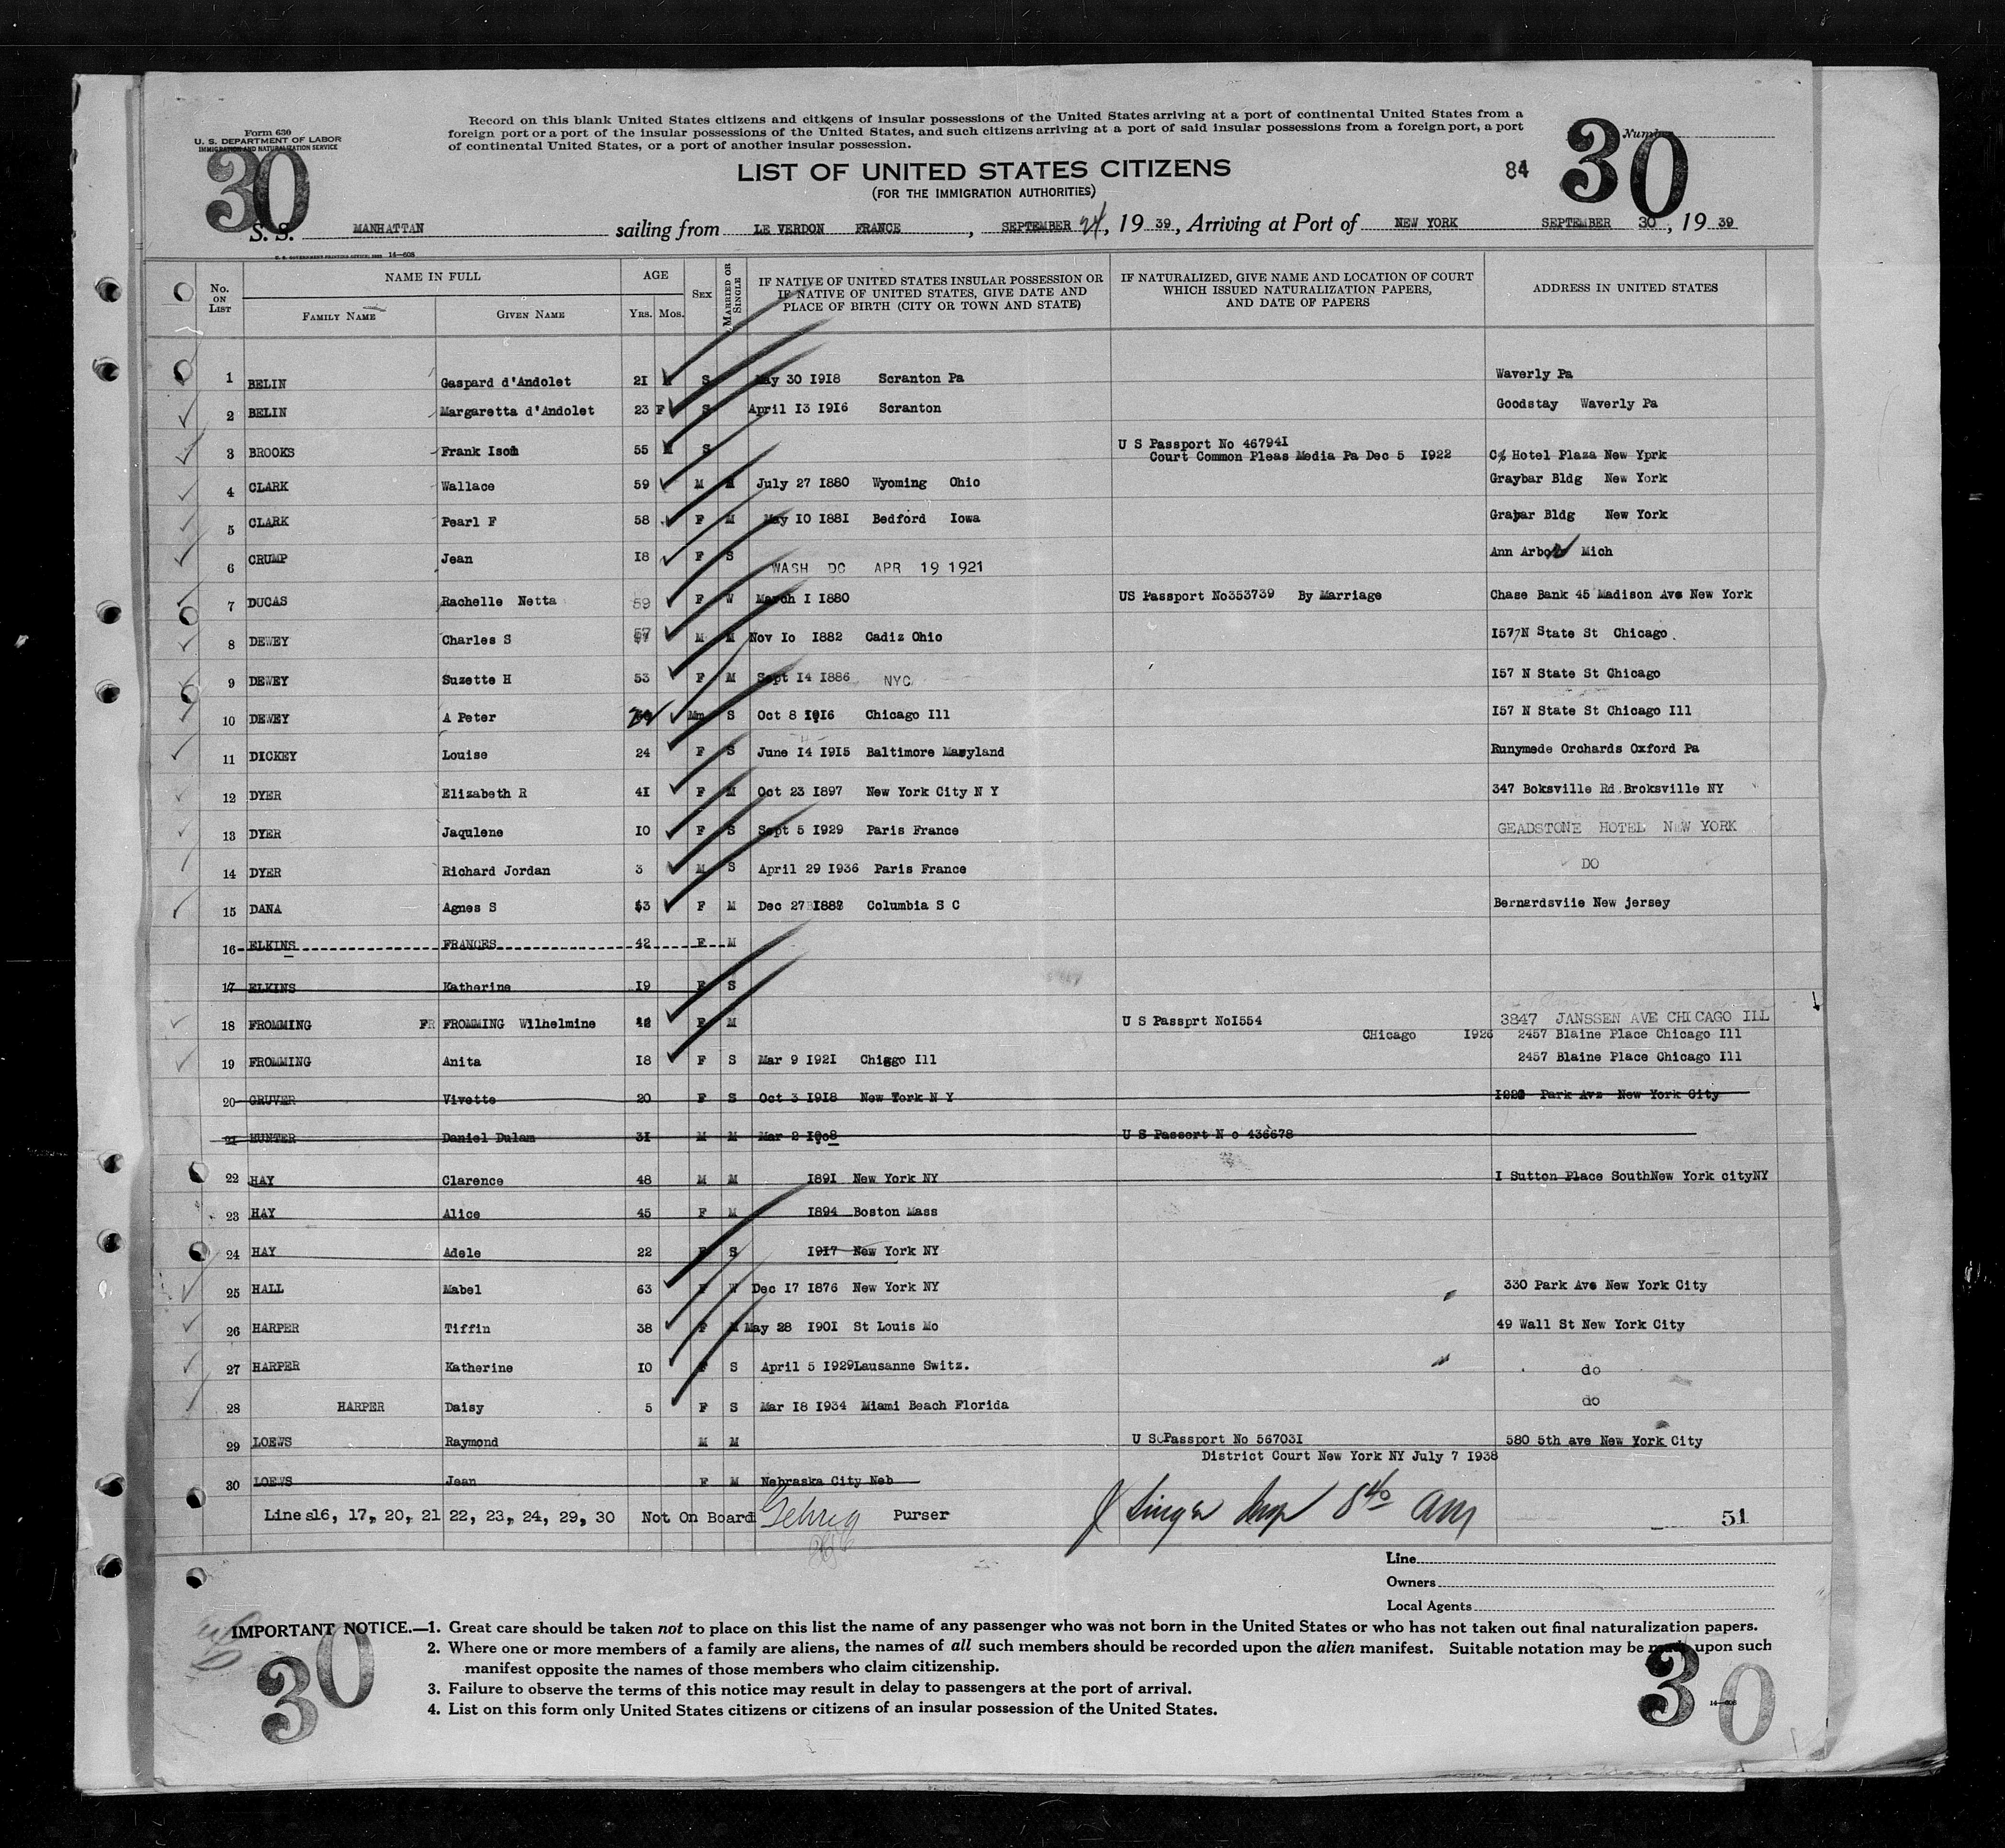 Form 630
U. S. DEPARTMENT OF LABOR
IMMIGRATION AND NATURALIZATION SERVICE
Record on this blank United States citizens and citizens of insular possessions of the United States arriving at a port of continental United States from a
foreign port or a port of the insular possessions of the United States, and such citizens arriving at a port of said insular possessions from a foreign port, a port
of continental United States, or a port of another insular possession.
30
30
Number
LIST OF UNITED STATES CITIZENS
84
(FOR THE IMMIGRATION AUTHORITIES)
S. S. MANHATTAN sailing from LE VERDON FRANCE, SEPTEMBER 24, 19 39, Arriving at Port of NEW YORK SEPTEMBER 30, 19 39
14—608
No. ON LIST NAME IN FULL FAMILY NAME GIVEN NAME AGE YRS. MOS. SEX MARRIED OR SINGLE IF NATIVE OF UNITED STATES INSULAR POSSESSION OR IF NATIVE OF UNITED STATES, GIVE DATE AND PLACE OF BIRTH (CITY OR TOWN AND STATE) IF NATURALIZED, GIVE NAME AND LOCATION OF COURT WHICH ISSUED NATURALIZATION PAPERS, AND DATE OF PAPERS ADDRESS IN UNITED STATES
1 BELIN Gaspard d'Andolet 21 M S May 30 1918 Scranton Pa Waverly Pa
2 BELIN Margaretta d'Andolet 23 F S April 13 1916 Scranton Goodstay Waverly Pa
3 BROOKS Frank Isom 55 M S U S Passport No 467941
Court Common Pleas Media Pa Dec 5 1922 C% Hotel Plaza New Yprk
4 CLARK Wallace 59 M M July 27 1880 Wyoming Ohio Graybar Bldg New York
5 CLARK Pearl F 58 F M May 10 1881 Bedford Iowa Graybar Bldg New York
6 CRUMP Jean 18 F S WASH DC APR 19 1921 Ann Arbor Mich
7 DUCAS Rachelle Netta 59 F W March 1 1880 US Passport No353739 By Marriage Chase Bank 45 Madison Ave New York
8 DEWEY Charles S 57 M M Nov 10 1882 Cadiz Ohio 157 N State St Chicago
9 DEWEY Suzette H 53 F M Sept 14 1886 NYC 157 N State St Chicago
10 DEWEY A Peter Mm S Oct 8 1916 Chicago Ill 157 N State St Chicago Ill
11 DICKEY Louise 24 F S June 14 1915 Baltimore Maryland Runymede Orchards Oxford Pa
12 DYER Elizabeth R 41 F M Oct 23 1897 New York City N Y 347 Boksville Rd Broksville NY
13 DYER Jaqulene 10 F S Sept 5 1929 Paris France GEADSTONE HOTEL NEW YORK
14 DYER Richard Jordan 3 M S April 29 1936 Paris France DO
15 DANA Agnes S 53 F M Dec 27 Columbia S C Bernardsviie New jersey
16 ELKINS FRANCES 42 F M
17 ELKINS Katherine 19 F S
18 FROMMING FR FROMMING Wilhelmine 42 F M U S Passprt No1554 3847 JANSSEN AVE CHICAGO ILL
CHicago 1926 2457 Blaine Place Chicago Ill
19 FROMMING Anita 18 F S Mar 9 1921 Chiggo Ill 2457 Blaine Place Chicago Ill
20 GRUVER Vivette 20 F S Oct 3 1918 New York N Y Park Ave New York City
21 HUNTER Daniel Dulam 31 M M Mar 2 1908 U S Passort N o 436678
22 HAY Clarence 48 M M 1891 New York NY 1 Sutton Place SouthNew York cityNY
23 HAY Alice 45 F M 1894 Boston Mass
24 HAY Adele 22 F S 1917 New York NY
25 HALL Mabel 63 F W Dec 17 1876 New York NY 330 Park Ave New York City
26 HARPER Tiffin 38 F M May 28 1901 St Louis Mo 49 Wall St New York City
27 HARPER Katherine 10 F S April 5 1929Lausanne Switz. do
28 HARPER Daisy 5 F S Mar 18 1934 Miami Beach Florida do
29 LOEWS Raymond M M U S Passport No 567031 580 5th ave New York City
District Court New York NY July 7 1938
30 LOEWS Jean F M Nebraska City Neb
Lines16, 17, 20, 21 22, 23, 24, 29, 30 Not On Board Gehrig Purser
8 40 am
51
Line
Owners
Local Agents
IMPORTANT NOTICE.—1. Great care should be taken not to place on this list the name of any passenger who was not born in the United States or who has not taken out final naturalization papers.
2. Where one or more members of a family are aliens, the names of all such members should be recorded upon the alien manifest. Suitable notation may be made upon such
manifest opposite the names of those members who claim citizenship.
3. Failure to observe the terms of this notice may result in delay to passengers at the port of arrival.
4. List on this form only United States citizens or citizens of an insular possession of the United States.
30
30
14—608